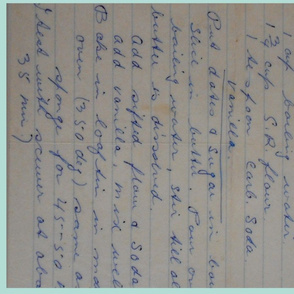 1 cup boiling water
1 3/4 cup S.R flour
1 teaspoon Carb Soda
Vanilla.
Put dates & Sugar in bow
Slice in butter. Pour on
boiling water, stir till al
butter is dissolved.
Add sifted flour & Soda
add vanilla, mix well
Bake in loaf tin in mod
oven (350 deg) same as
sponge for 45-50
(Test with skewer at abo
35 min)